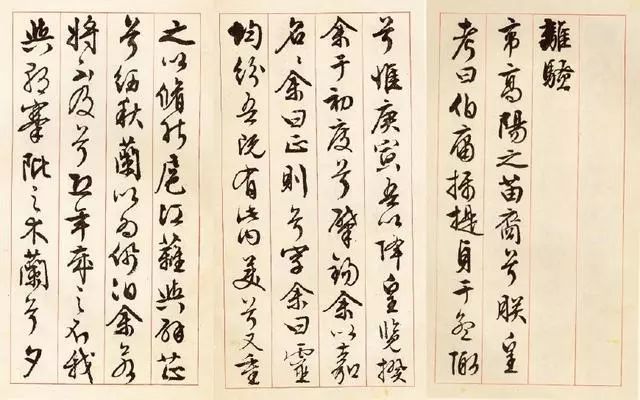 離騷
帝高陽之苗裔兮朕皇
考曰伯庸攝提貞于孟陬
兮惟庚寅吾以降皇覽揆
余于初度兮肇錫余以嘉
名〻余曰正則兮字余曰靈
均紛吾既有此內美兮又重
之以脩能扈江蘺與辟芷
兮紉秋蘭以為佩汩余若
將不及兮恐年歲之不我
與朝搴阰之木蘭兮夕